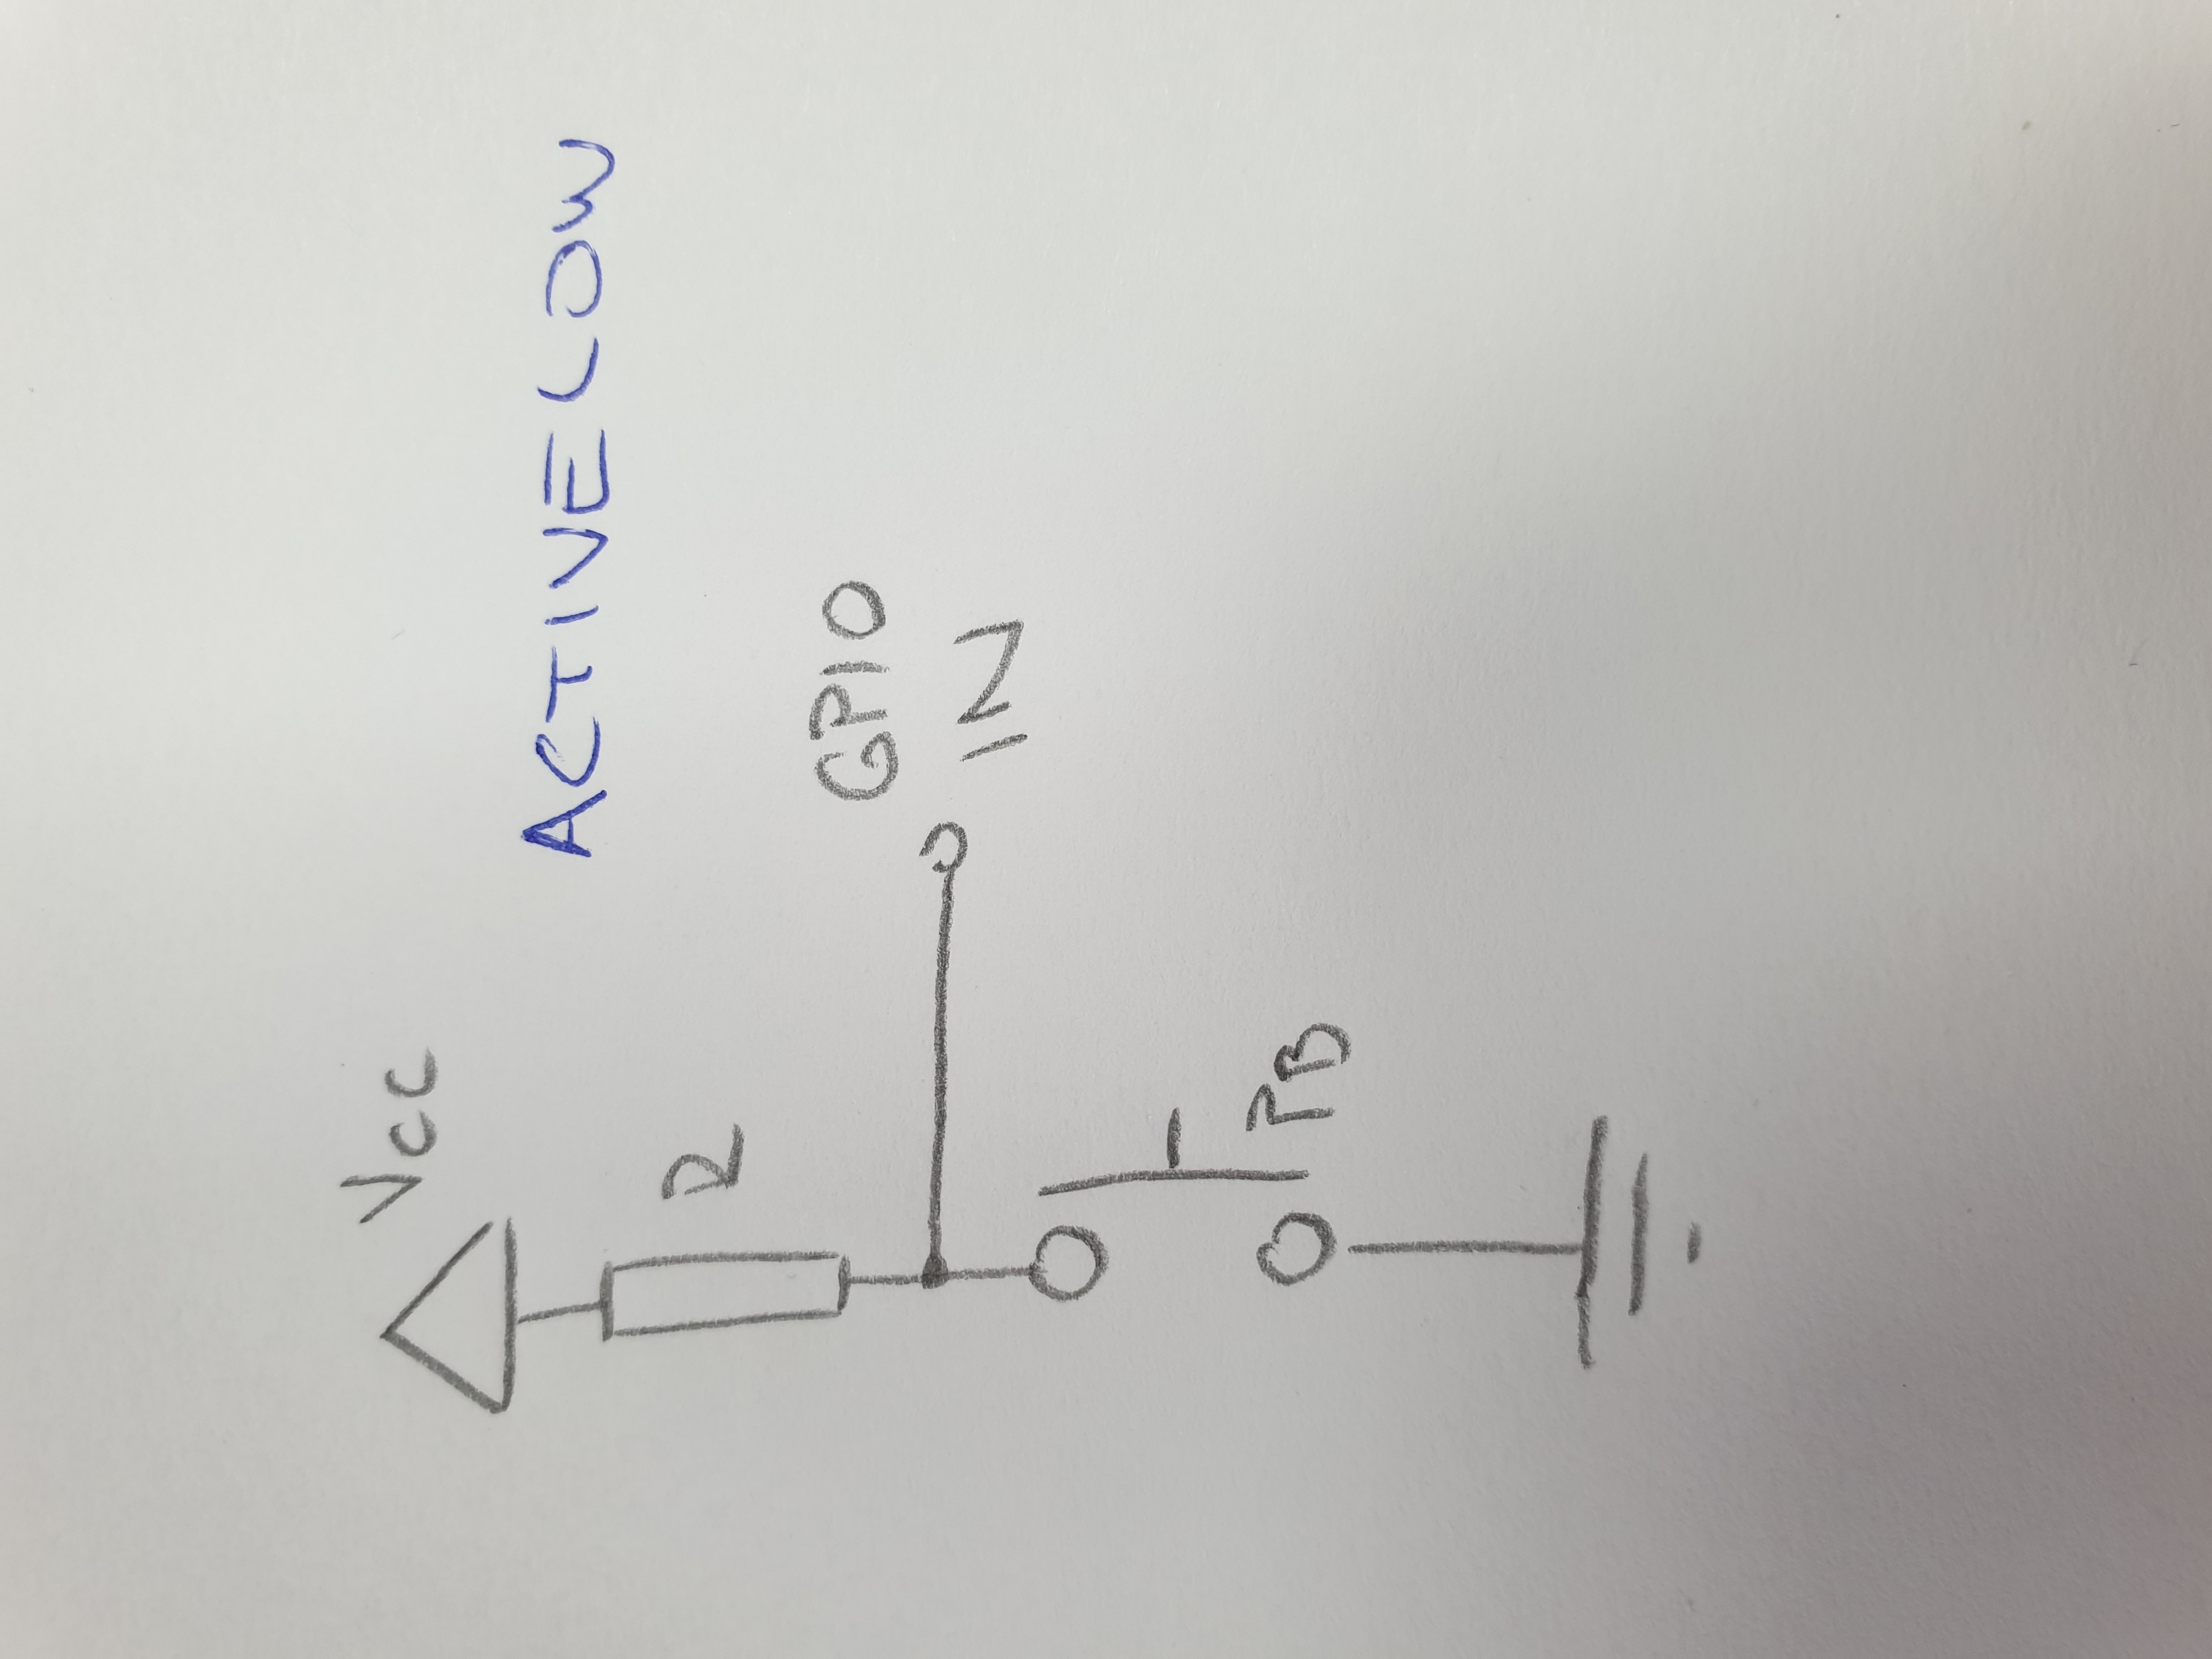 Vcc
ACTIVE LOW
R
GPIO
IN
PB